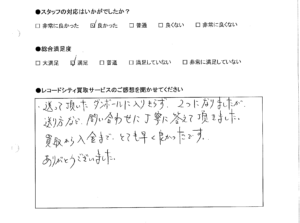 ●スタッフの対応はいかがでしたか？
□非常に良かった ☑良かった □普通 □良くない □非常に良くない
●総合満足度
□大満足 ☑満足 □普通 □満足していない □非常に満足していない
●レコードシティ買取サービスのご感想を聞かせてください
送って頂いたダンボールに入りきらず、2つになりましたが、
送り方など、問い合わせに丁寧に答えて頂きました。
買取から入金まで、とても早く良かったです。
ありがとうございました。